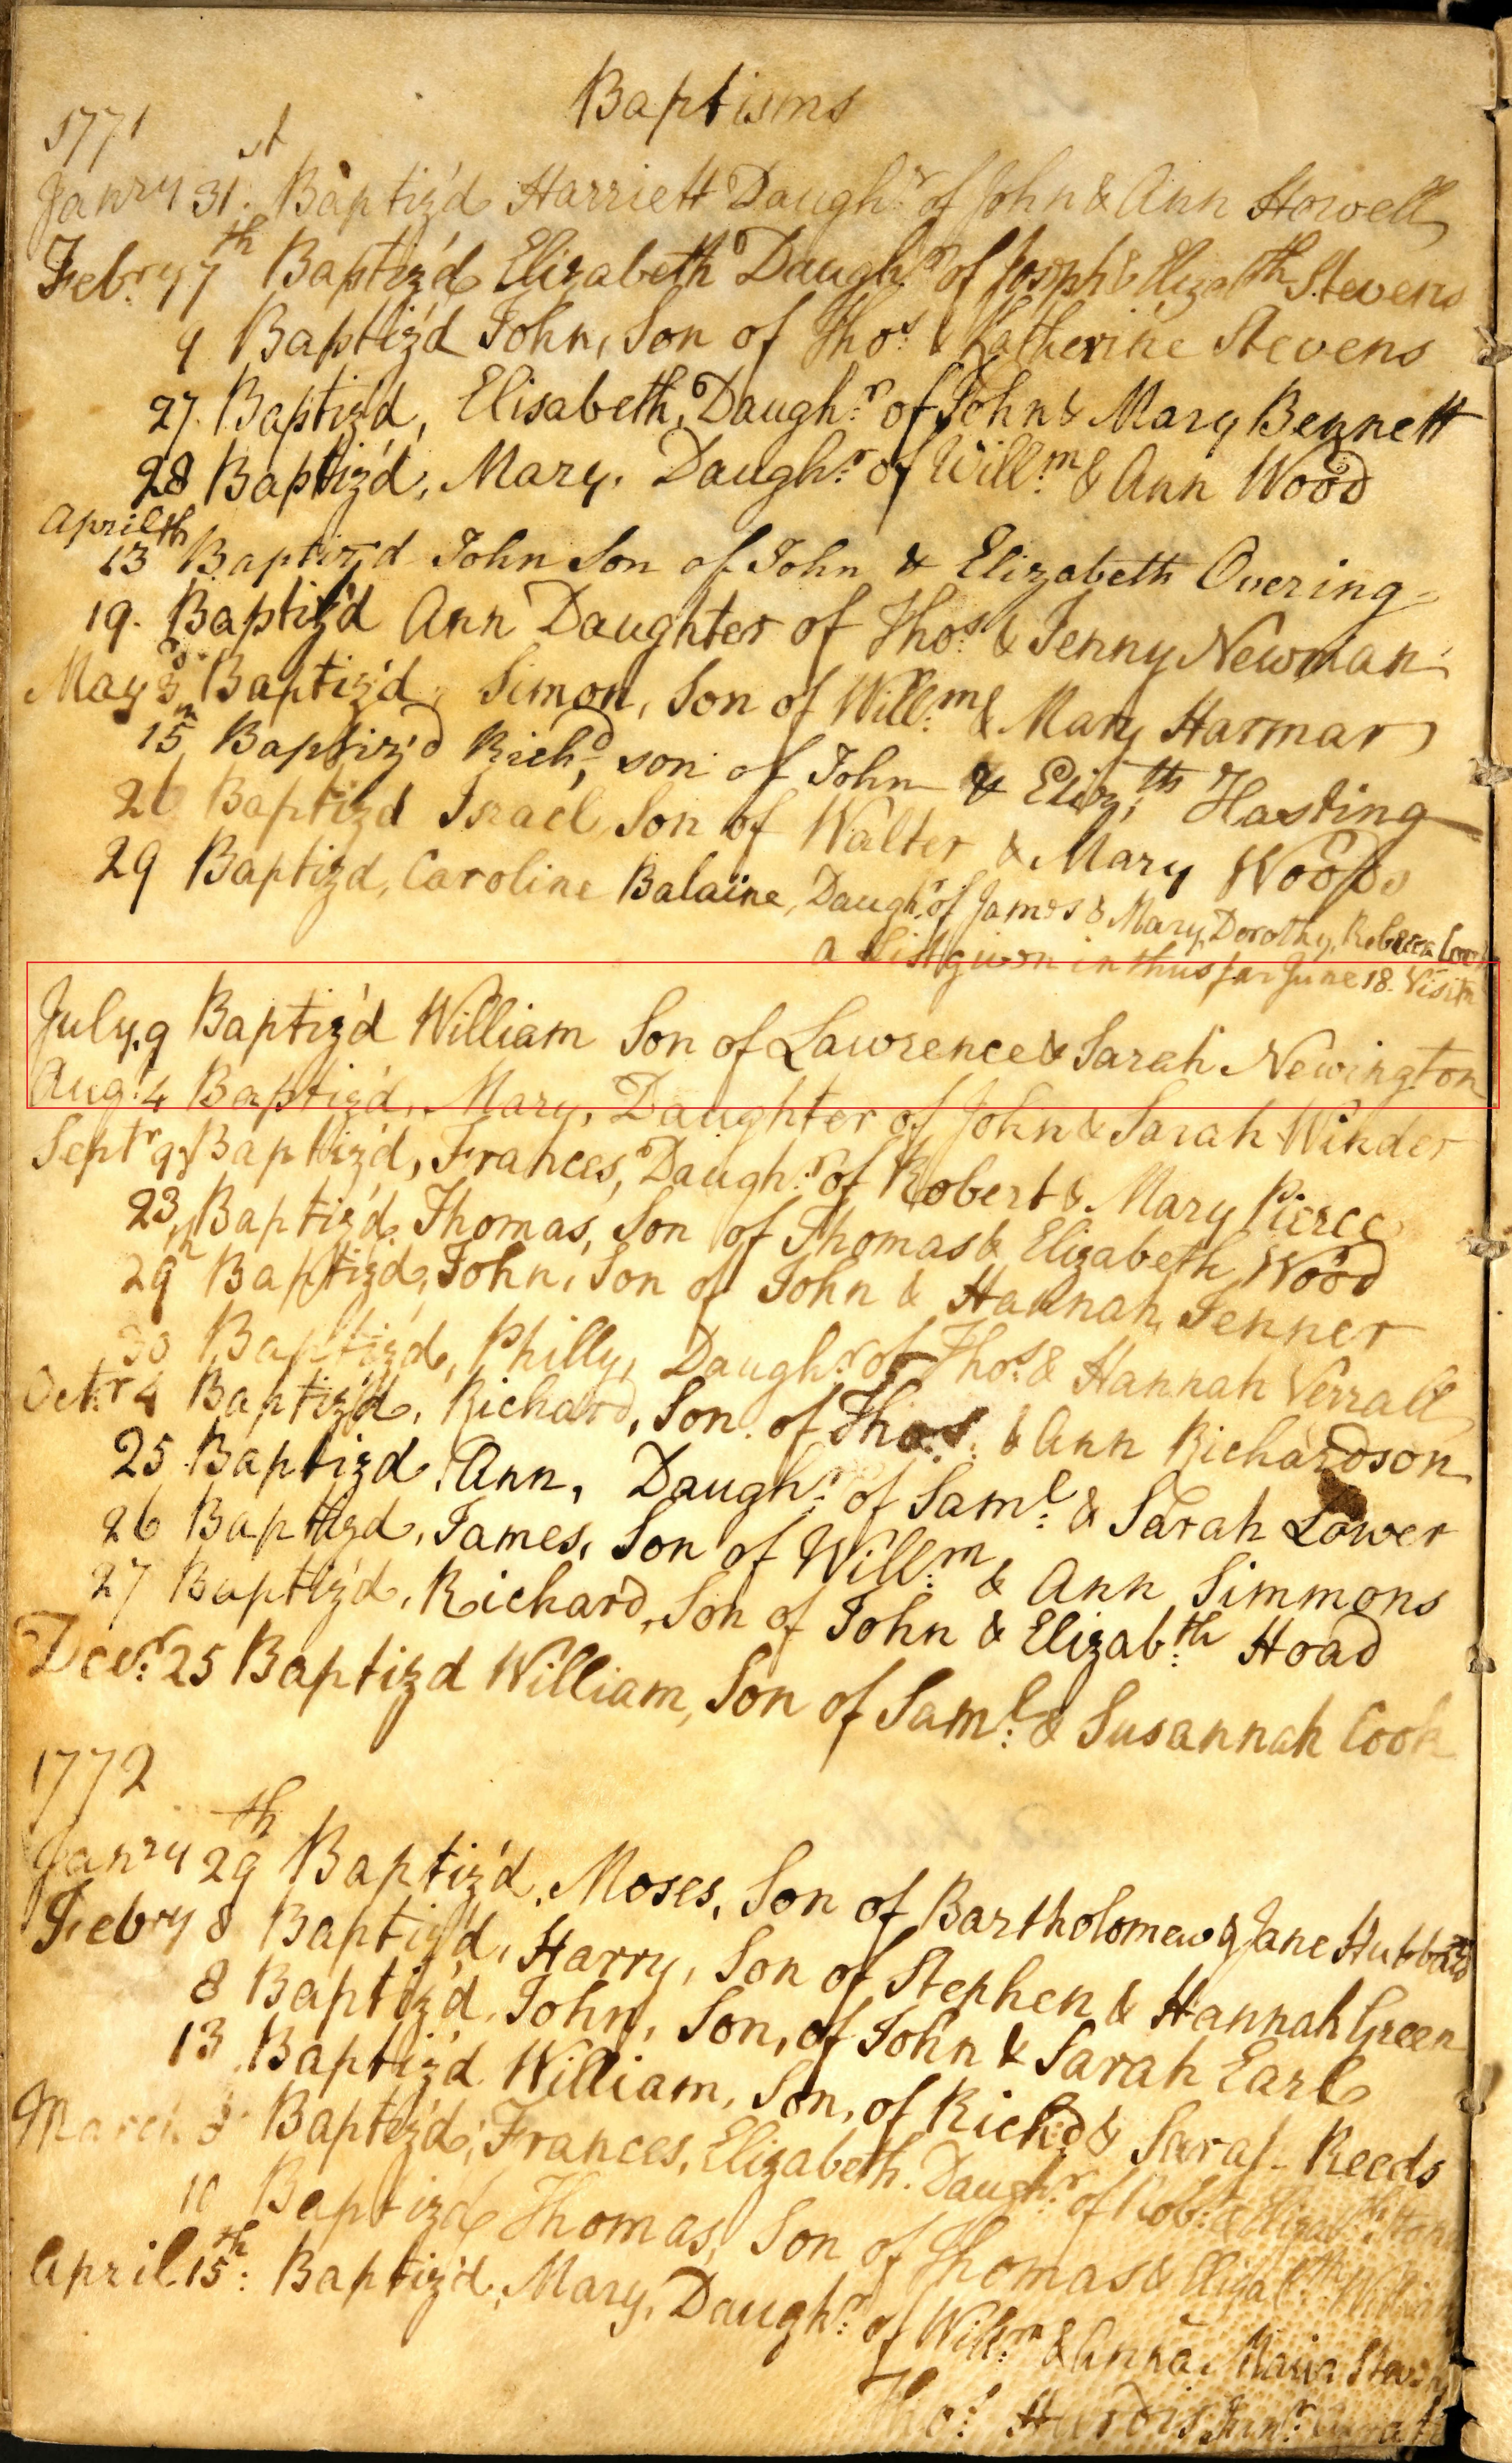 Baptisms
1771
Janry 31st. Baptiz'd Harriett Daughr. of John & Ann Howell
Febry 7th Baptiz'd Elizabeth Daughr. of Joseph & Elizabth Stevens
9 Baptiz'd John, Son of Thos. & Katherine Stevens
27. Baptiz'd, Elisabeth, Daughr. of John & Mary Bennett
28 Baptiz'd, Mary, Daughr. of Willm. & Ann Wood
April
13th Baptiz'd John Son of John & Elizabeth Overing
19. Baptiz'd Ann Daughter of Thos. & Jenny Newman
May 3d. Baptiz'd, Simon, Son of Willm. & Mary Harmar
15 Baptiz'd Richd, son of John & Elizth. Hasting
26 Baptiz'd Israel, Son of Walter & Mary Woods
29 Baptiz'd, Caroline Balaine, Daughr. of James & Mary, Dorothy, Rebecca
a List given in thus far June 18. Visitn
July 9 Baptiz'd William Son of Lawrence & Sarah Newington
Aug: 4 Baptiz'd, Mary, Daughter of John & Sarah Winder
Septr 9 Baptiz'd, Frances, Daughr. of Robert & Mary Pierce
23, Baptiz'd, Thomas, Son of Thomas & Elizabeth Wood
29th Baptiz'd, John, Son of John & Hannah Jenner
30 Baptiz'd, Philly, Daughr. of Thos. & Hannah Verrall
Octr. 4 Baptiz'd, Richard, Son of Thos. & Ann Richardson
25 Baptiz'd, Ann, Daughr. of Saml. & Sarah Lower
26 Baptiz'd, James, Son of Willm. & Ann Simmons
27 Baptiz'd, Richard, Son of John & Elizabth. Hoad
Decr. 25 Baptiz'd William, Son of Saml. & Susannah Cook
1772
Janry 29th Baptiz'd, Moses, Son of Bartholomew & Jane Hubbard
Febry 8 Baptiz'd, Harry, Son of Stephen & Hannah Green
8 Baptiz'd, John, Son, of John & Sarah Earl
13 Baptiz'd William, Son, of Richd. & Sarah Reeds
March 8 Baptiz'd, Frances, Elizabeth. Daughr. of Robt. & Elizabth.
10 Baptiz'd Thomas, Son of Thomas & Elizabth.
April 15th: Baptiz'd, Mary, Daughr. of Willm. & Anna Maria
Thos. Hurdis Junr. Curate